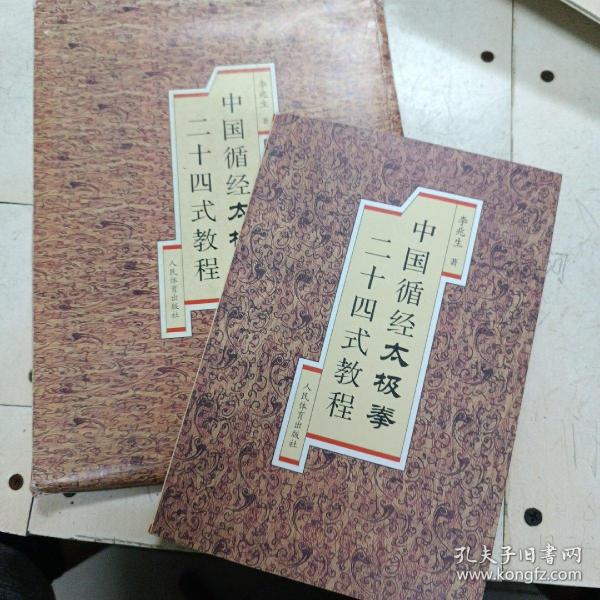 李兆生 著
中国循经太极
二十四式教程
人民体育出版社
李兆生 著
中国循经太极拳
二十四式教程
人民体育出版社
孔夫子旧书网
www.kongfz.com